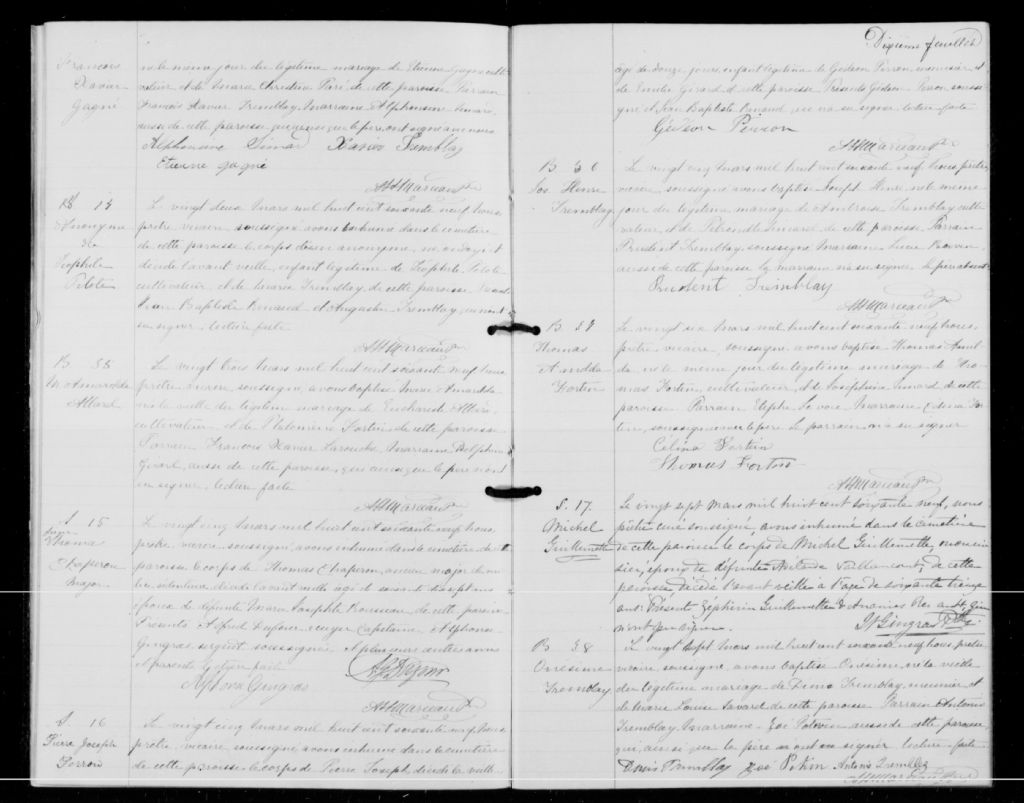 François
Xavier
Gagné
né le même jour du légitime mariage de Etienne Gagné culti-
vateur et de Maria Christine Paré de cette paroisse Parrain
François Xavier Tremblay, Marraine Alphonsine Simard,
aussi de cette paroisse qui ainsi que le père, ont signé avec nous
Alphonsine Simard Xavier Tremblay
Etienne gagné
S 14
Anonyme
de
Théophile
Pilote
Le vingt deux Mars mil huit cent soixante neuf Nous
prêtre vicaire soussigné avons inhumé dans le cimetière
de cette paroisse le corps d'un anonyme, né ondoyé et
décédé l'avant veille, enfant légitime de Théophile Pilote
cultivateur, et de Maria Tremblay, de cette paroisse
Jean Baptiste Renaud et Augustin Tremblay qui n'ont
su signer. Lecture faite
B 35
M. Amarilda
Allard
Le vingt trois Mars mil huit cent soixante neuf Nous
prêtre vicaire, soussigné, avons baptisé Marie Amarilda
née la veille du légitime mariage de Euchariste Allard
cultivateur et de Fortin de cette paroisse
Parrain François Xavier Larouche Marraine Delphine
Girard, aussi de cette paroisse, qui ainsi que le père n'ont
su signer. lecture faite
S. 15
Thomas
Chaperon
major
Le vingt cinq Mars mil huit cent soixante neuf Nous
prêtre vicaire soussigné, avons inhumé dans le cimetière de
paroisse le corps de Thomas Chaperon, ancien major de mi-
lice sédentaire décédé l'avant veille agé de soixante
époux de défunte Marie Josephte Rousseau de cette paroisse
Présents Alfred Dufour Capitaine Alphonse
Gingras sergent soussignés et plusieurs autres amis
et parents Lecture faite
Alphonse Gingras
S. 16
Pierre Joseph
Perron
Le vingt cinq Mars mil huit cent soixante neuf, Nous
prêtre, vicaire, soussigné, avons inhumé dans le cimetière
de cette paroisse le corps de Pierre Joseph, décédé la veille
Dixième feuillet
agé de douze jours, enfant légitime de Gédéon Perron, menuisier et
de Emilie Girard de cette paroisse Présents Gédéon Perron soussi-
gné et Jean Baptiste Renaud qui n'a su signer. lecture faite
Gédéon Perron
B 36
Jos. Henri
Tremblay
Le vingt cinq Mars mil huit cent soixante neuf, Nous prêtre
vicaire, soussigné avons baptisé Joseph Henri né le même
jour du légitime mariage de Ambroise Tremblay culti-
vateur, et de Pétronille Simard, de cette paroisse Parrain
Prudent Tremblay, soussigné Marraine Luce Boivin
aussi de cette paroisse La marraine n'a su signer. Le père absent
Prudent Tremblay
B. 37
Thomas
Amilda
Fortin
Le vingt six Mars mil huit cent soixante neuf Nous,
prêtre, vicaire, soussigné, avons baptisé Thomas Amil-
da né le même jour du légitime mariage de Tho-
mas Fortin, cultivateur et de Josephine Simard de cette
paroisse Parrain Elzéar Marraine Célina For-
tin, soussignée avec le père Le parrain n'a su signer
Célina Fortin
Thomas Fortin
S. 17.
Michel
Guillemette
Le vingt sept Mars mil huit cent soixante neuf, nous
prêtre curé soussigné avons inhumé dans le cimetière
de cette paroisse le corps de Michel Guillemette, menui-
sier, époux de défunte Adelaïde Vaillancourt, de cette
paroisse décédé l'avant veille à l'age de soixante treize
ans. Présents Zéphirin Guillemette &
n'ont pu signer.
B 38
Onésime
Tremblay
Le vingt sept Mars mil huit cent soixante neuf Nous prêtre
vicaire, soussigné, avons baptisé Onésime né la veille
du légitime mariage de Denis Tremblay menuisier et
de Marie Louise Savard de cette paroisse Parrain Antonio
Tremblay Marraine Zoé Potvin aussi de cette paroisse
qui, ainsi que le père ont su signer lecture faite
Denis Tremblay Zoé Potvin Antonio Tremblay